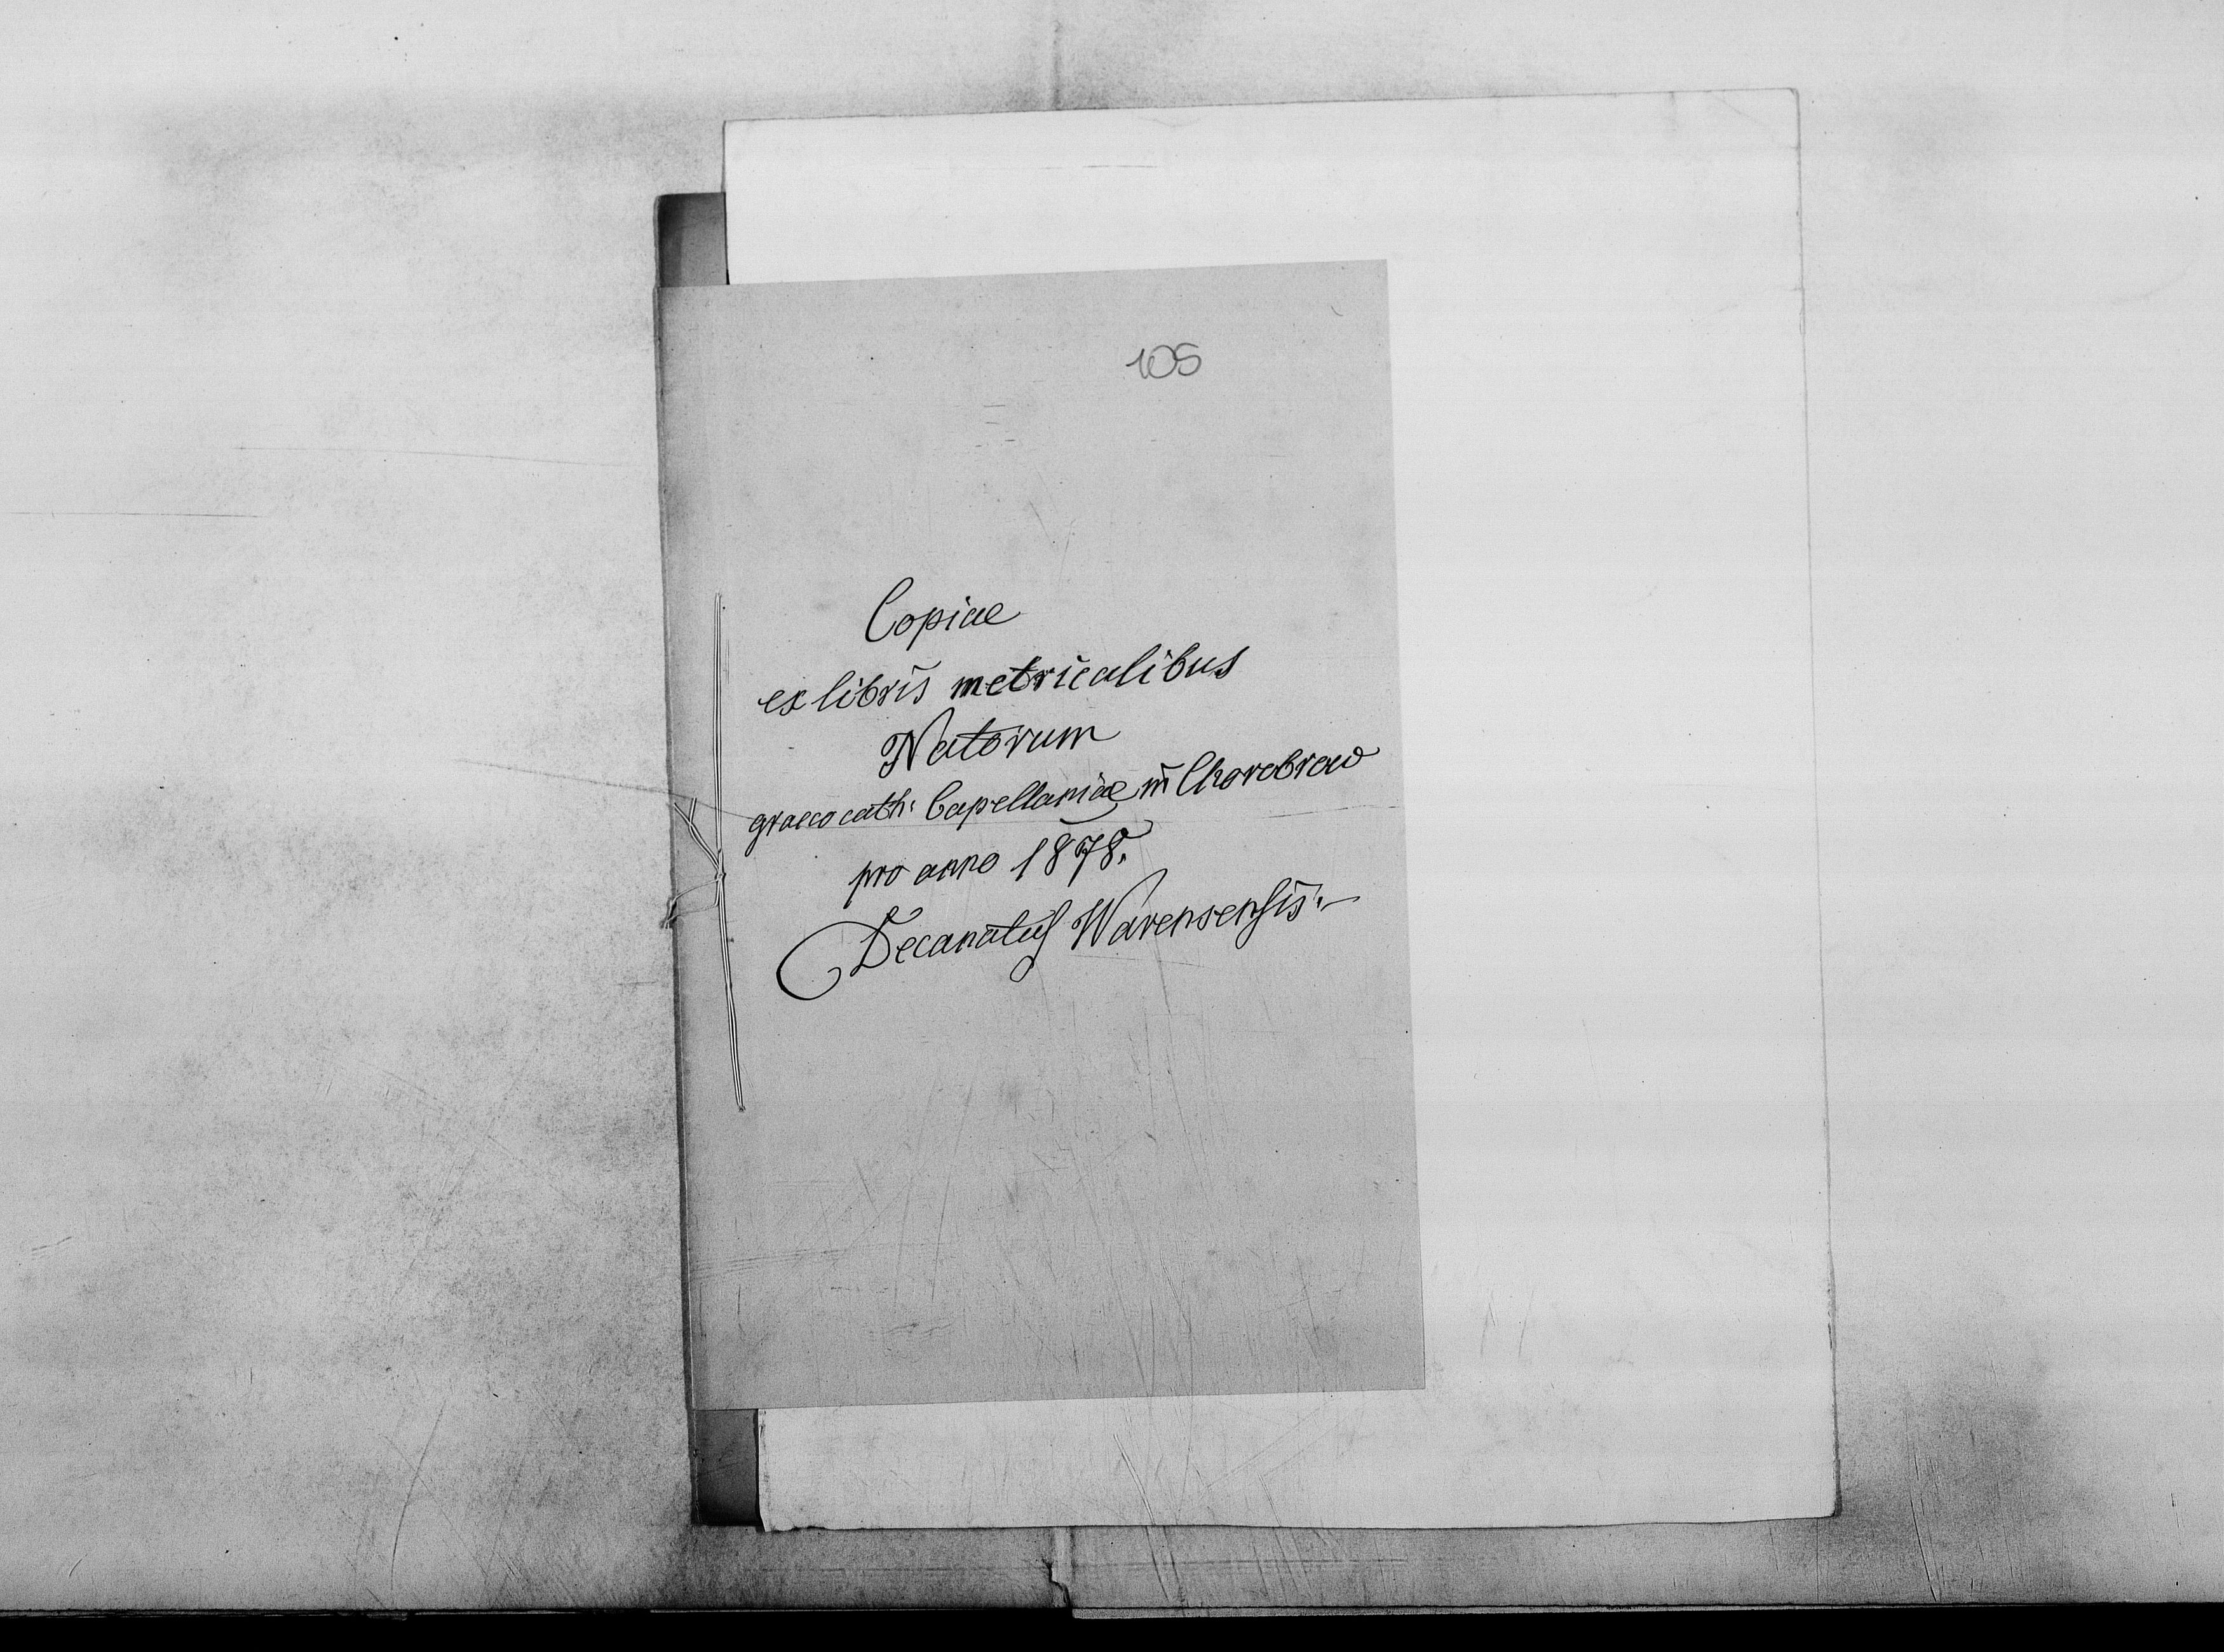 105
Copiae
ex libris metricalibus
Natorum
graeco cath: Capellaniae in Chorobrow
pro anno 1878.
Decanatus Warensensis.